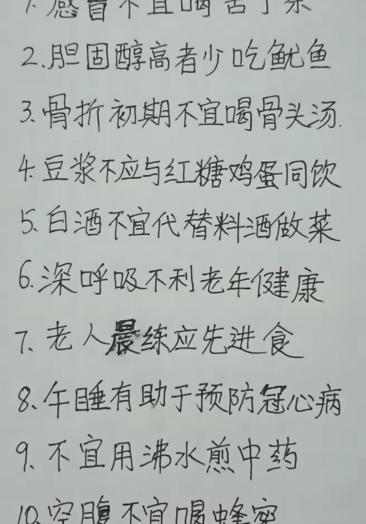 1. 感冒不宜喝苦丁茶
2. 胆固醇高者少吃鱿鱼
3. 骨折初期不宜喝骨头汤.
4. 豆浆不应与红糖鸡蛋同饮
5. 白酒不宜代替料酒做菜
6. 深呼吸不利老年健康
7. 老人晨练应先进食
8. 午睡有助于预防冠心病
9. 不宜用沸水煎中药
10. 空腹不宜喝蜂蜜